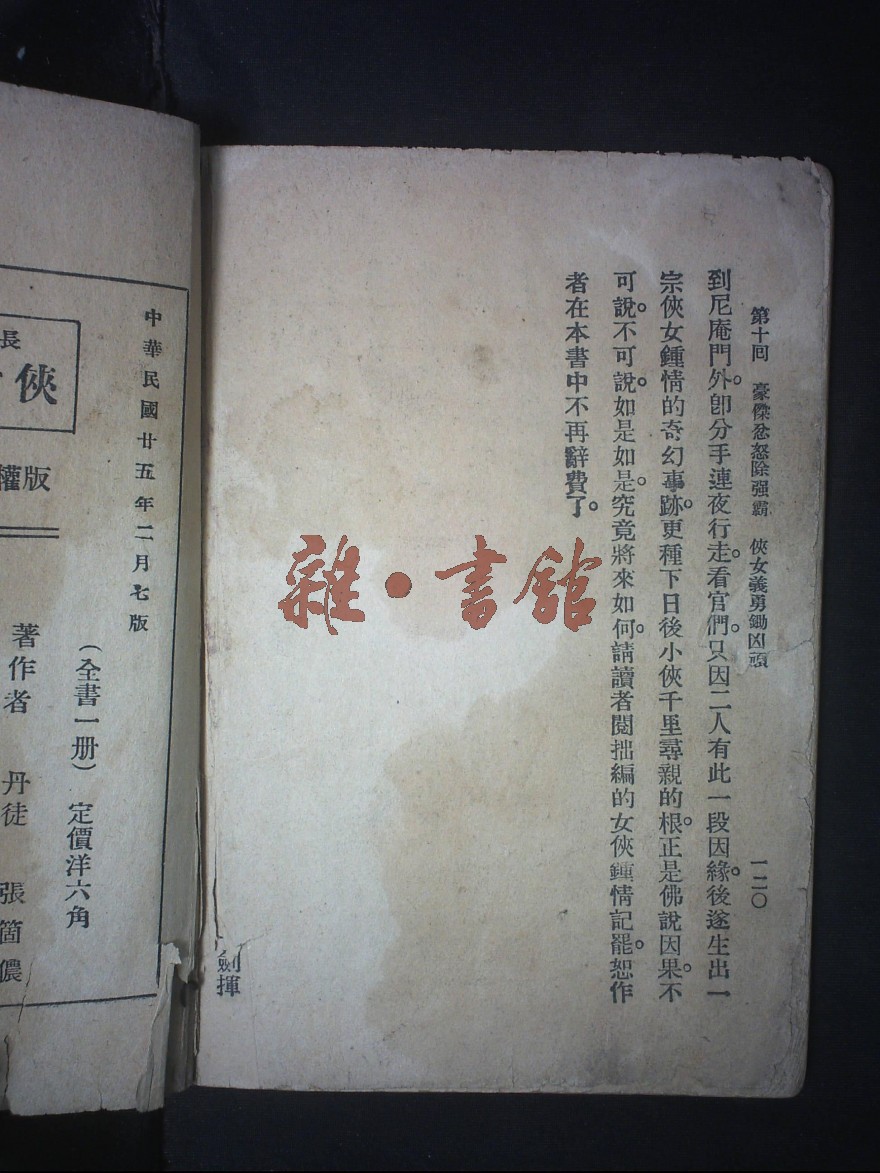 第十回　豪傑忿怒除强霸　俠女義勇鋤凶頑　一二〇
到尼庵門外。卽分手連夜行走。看官們。只因二人有此一段因緣。後遂生出一
宗俠女鍾情的奇幻事跡。更種下日後小俠千里尋親的根。正是佛說因果。不
可說。不可說。如是如是。究竟將來如何。請讀者閱拙編的女俠鍾情記罷。恕作
者在本書中不再辭費了。
劍揮
雜·書館
中華民國廿五年二月七版
（全書一册）定價洋六角
著作者　丹徒　張箇儂
長
俠
版權